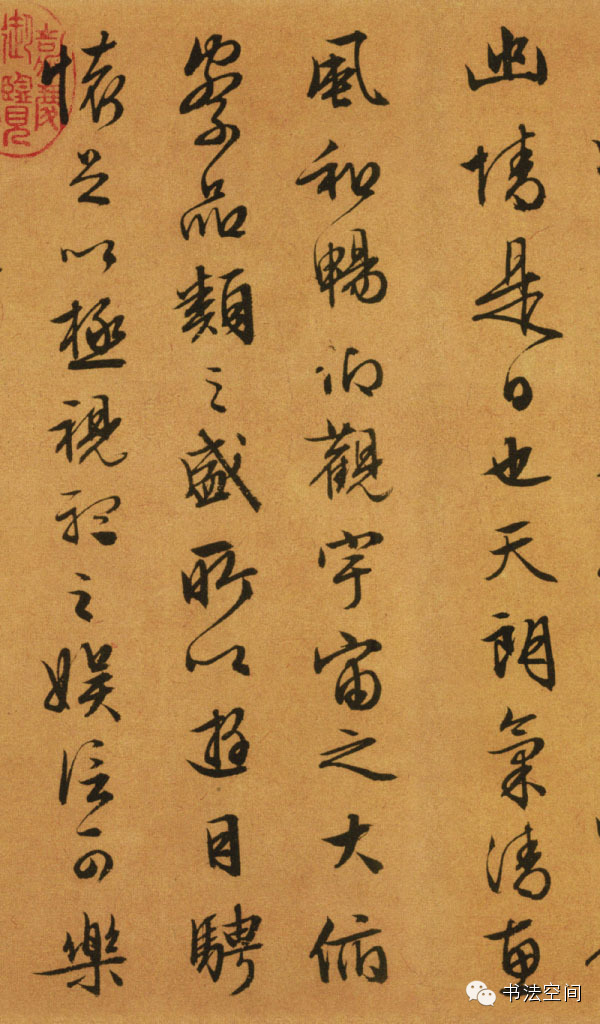 幽情是日也天朗氣清惠
風和暢仰觀宇宙之大俯
察品類之盛所以遊目騁
懷足以極視聽之娛信可樂
嘉慶
御覽
书法空间